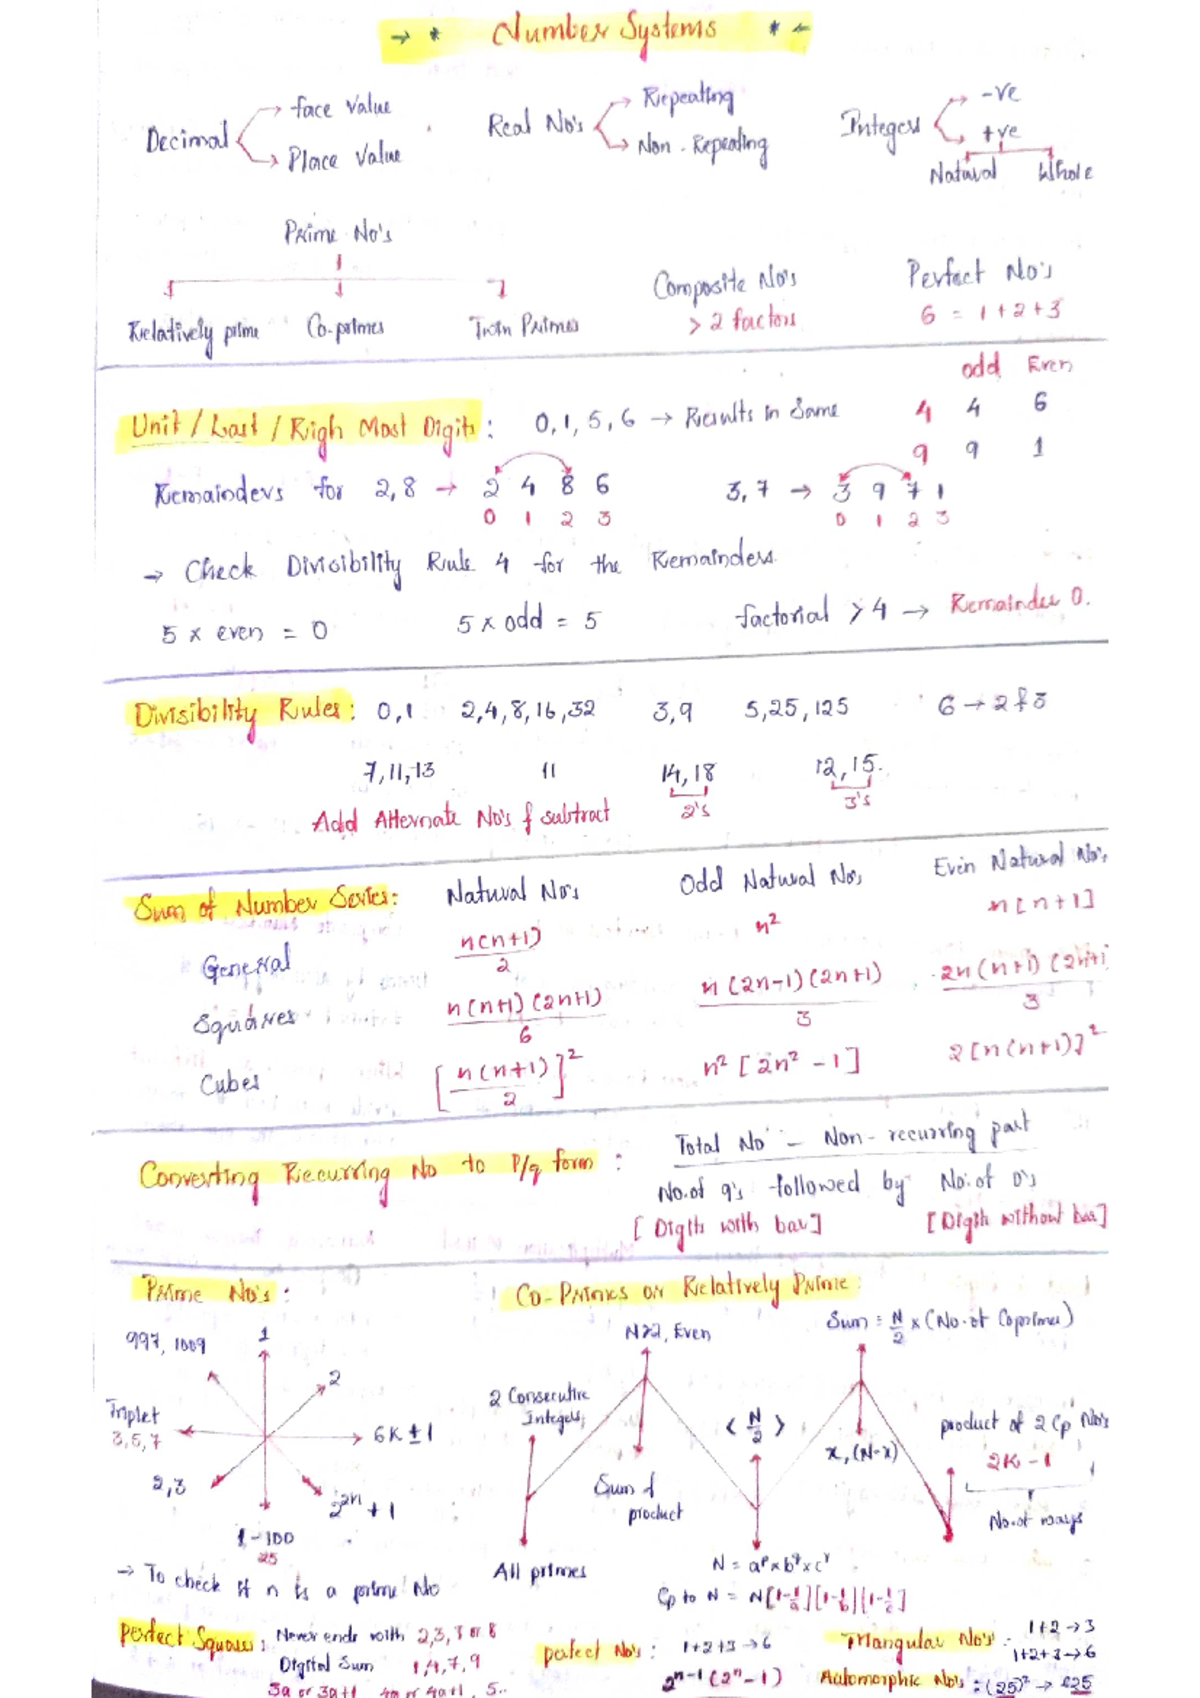 → * Number Systems * ←
Decimal → face Value → Place Value
Real No's → Repeating → Non-Repeating
Integers → -ve → +ve
Natural Whole
Prime No's
Relatively prime Co-primes Twin Primes
Composite No's
> 2 factors
Perfect No's
6 = 1+2+3
odd Even
Unit / Last / Righ Most Digit : 0, 1, 5, 6 → Results in Same
4 4 6
9 9 1
Remainders for 2,8 → 2 4 8 6
0 1 2 3
3, 7 → 3 9 7 1
0 1 2 3
→ Check Divisibility Rule 4 for the Remainders
5 x even = 0 5 x odd = 5 factorial > 4 → Remainder 0.
Divisibility Rules : 0,1 2,4,8,16,32 3,9 5,25,125 6 → 2 & 3
7,11,13 11 14,18 12,15.
2's 3's
Add Alternate No's & subtract
Sum of Number Series : Natural No's Odd Natural No's Even Natural No's
General n(n+1)/2 n² n[n+1]
Squares n(n+1)(2n+1)/6 n(2n-1)(2n+1)/3 2n(n+1)(2n+1)/3
Cubes [n(n+1)/2]² n²[2n²-1] 2[n(n+1)]²
Converting Recurring No to P/q form : Total No - Non-recurring part
No.of 9's followed by No.of 0's
[Digits with bar] [Digits without bar]
Prime No's :
997, 1009
1
2
6K ± 1
2^2n + 1
1-100
25
2,3
Triplet
3,5,7
→ To check if n is a prime No
Co-Primes or Relatively Prime :
N>2, Even
2 Consecutive
Integers
Sum &
product
All primes
< N/2 >
Sum = N/2 x (No.of Coprimes)
x, (N-x)
product of 2 Cp No's
2K-1
No.of ways
N = a^p x b^q x c^r
Cp to N = N[1-1/a][1-1/b][1-1/c]
Perfect Squares : Never ends with 2,3,7 or 8
Digital Sum 1,4,7,9
3a or 3a+1 4a or 4a+1 , 5..
perfect No's : 1+2+3→6
2^n-1 (2^n - 1)
Triangular No's : 1+2→3
1+2+3→6
Automorphic No's : (25)² → 625